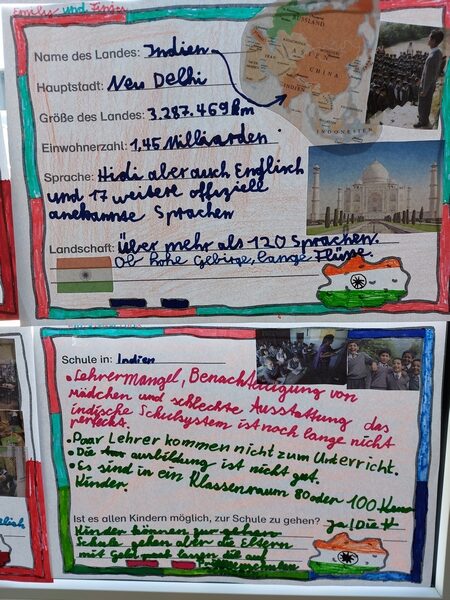 Emely und
Name des Landes: Indien
Hauptstadt: New Delhi
Größe des Landes: 3.287.469 km
Einwohnerzahl: 1,45 Milliarden
Sprache: Hidi aber auch Englisch
und 17 weitere offiziele
anekannse Sprachen
Landschaft: über mehr als 120 Sprachen.
Ob hohe gebirge, lange Flüsse.
RUSSLAND
ASIEN
CHINA
INDIEN
INDONESIEN
Schule in: Indien
• Lehrermangel, Benachteiligung von
mädchen und schlechte Ausstattung das
indische Schulsystem ist noch lange nicht
perfeckt.
• Paar Lehrer kommen nicht zum Unterricht.
• Die ausbildung ist nicht gut.
• Es sind in ein Klassenraum 80 oder 100
Kinder.
Ist es allen Kindern möglich, zur Schule zu gehen? ja! Die
Kinder können zur
Schule gehen aber die Eltern
mit Geld auf